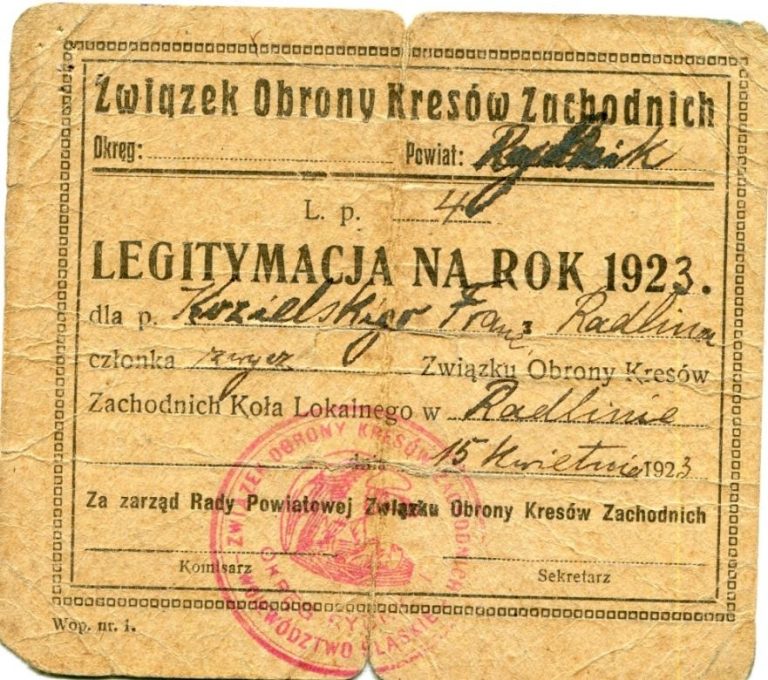 Związek Obrony Kresów Zachodnich
Okręg: Powiat: Rybnik
L. p. 4
LEGITYMACJA NA ROK 1923.
dla p. Kozielskigo Franc Radlina
członka zwycz Związku Obrony Kresów
Zachodnich Koła Lokalnego w Radlinie
dnia 15 Kwietnia 1923
Za zarząd Rady Powiatowej Związku Obrony Kresów Zachodnich
Komisarz Sekretarz
Wop. nr. 1.
ZWIĄZEK OBRONY KRESÓW ZACHODNICH
WOJEWÓDZTWO ŚLĄSKIE